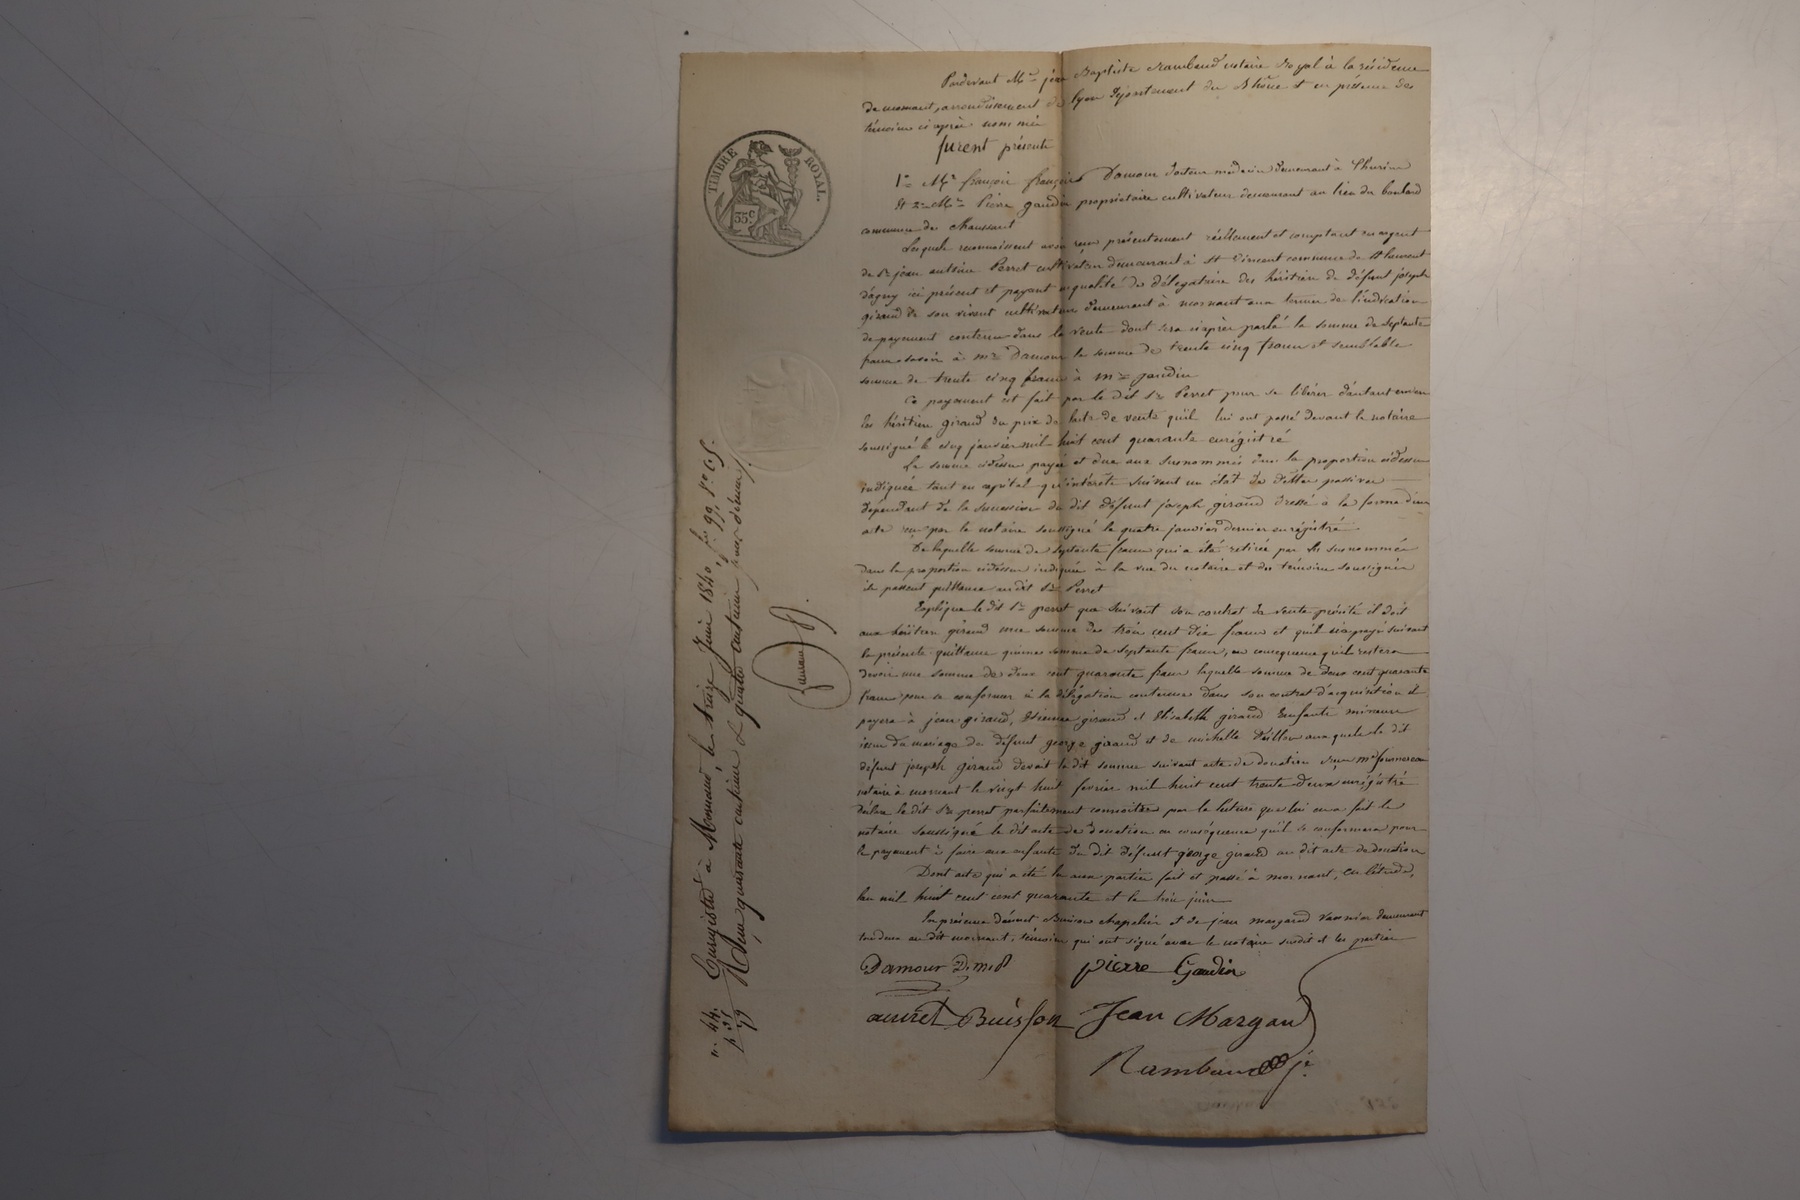 Pardevant Me jean Baptiste Rambaud notaire Royal à la résidence
de mornant, arrondissement de lyon département du Rhône et en présence des
témoins ci après nommés
furent présents
1° Mr françois françois Damour docteur médecin demeurant à Thurins
Et 2° Mr Pierre gaudin propriétaire cultivateur demeurant au lieu du boulard
commune de Chaussant
Lesquels reconnaissent avoir reçu présentement réellement et comptant en argent
de Sr jean antoine Perret cultivateur demeurant à St Vincent commune de St laurent
d'agny ici présent et payant en qualité de délégataire des héritiers de défunt joseph
giraud de son vivant cultivateur demeurant à mornant aux termes de l'indication
de payement contenue dans la vente dont sera ci après parlé la somme de septante
francs savoir à mr Damour la somme de trente cinq francs et semblable
somme de trente cinq francs à mr gaudin
Ce payement est fait par le dit Sr Perret pour se libérer d'autant envers
les héritiers giraud du prix de l'acte de vente qu'il lui ont passé devant le notaire
soussigné le cinq janvier mil huit cent quarante enrégistré
La somme cidessus payée et due aux susnommés dans la proportion cidessus
indiquée tant en capital qu'intérêts suivant un état de dettes passives
dépendant de la succession du dit défunt joseph giraud dressé à la forme d'un
acte reçu par le notaire soussigné le quatre janvier dernier enrégistré
De laquelle somme de septante francs qui a été retirée par les susnommés
dans la proportion cidessus indiquée à la vue du notaire et des témoins soussignés
ils passent quittance au dit Sr Perret
Explique le dit Sr perret que suivant son contrat de vente précité il doit
aux héritiers giraud une somme de trois cent dix francs et qu'il n'a payé suivant
la présente quittance qu'une somme de septante francs, en conséquence qu'il restera
devoir une somme de deux cent quarante francs laquelle somme de deux cent quarante
francs pour se conformer à la délégation contenue dans son contrat d'acquisition il
payera à jean giraud, Etienne giraud et Elisabeth giraud Enfants mineurs
issus du mariage de défunt george giraud et de michelle auxquels le dit
défunt joseph giraud devait la dit somme suivant acte de donation reçu me fournereau
notaire à mornant le vingt huit février mil huit cent trente deux enrégistré
déclare le dit Sr perret parfaitement connaître par la lecture que lui en a fait le
notaire soussigné le dit acte de donation en conséquence qu'il se conformera pour
le payement à faire aux enfants du dit défunt george giraud au dit acte de donation
Dont acte qui a été lu aux parties fait et passé à mornant, en l'étude,
l'an mil huit cent cent quarante et le trois juin
En présence d'annet Buisson chapelier et de jean margand demeurant
tous deux au dit mornant, témoins qui ont signé avec le notaire susdit et les parties
Damour D. m. P. pierre Gaudin
annet Buisson Jean Margand
Rambaud je
TIMBRE ROYAL.
35c
n. 44. Enregistré à Mornant, le treize Juin 1840, fo 99, Ro c 5.
Reçu quarante centimes & quatre centimes pour décime.